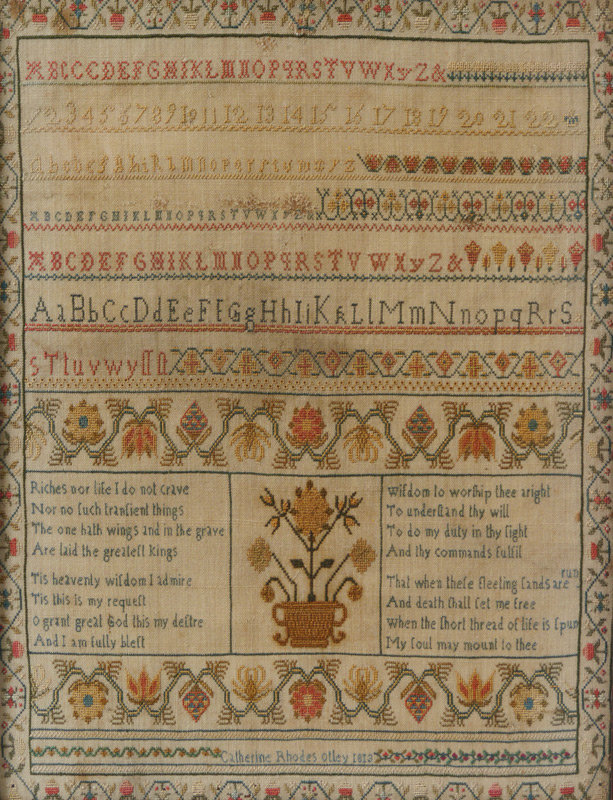 A B C C D E F G H I K L M N O P Q R S T V W X y Z &
1 2 3 4 5 6 7 8 9 10 11 12 13 14 15 16 17 18 19 20 21 22
a b c d e f g h i k l m n o p q r ſ t u v w x y z
A B C D E F G H I K L M N O P Q R S T V W X
A B C D E F G H I K L M N O P Q R S T V W X y Z &
A a B b C c D d E e F f G g H h I i K k L l M m N n o p q R r S
s T t u v w y ſſ ſt
Riches nor life I do not crave
Nor no ſuch tranſient things
The one hath wings and in the grave
Are laid the greateſt kings
Tis heavenly wiſdom I admire
Tis this is my requeſt
O grant great God this my deſire
And I am fully bleſt
Wiſdom to worſhip thee aright
To underſtand thy will
To do my duty in thy ſight
And thy commands fulfil
That when theſe fleeting ſands are run
And death ſhall ſet me free
When the ſhort thread of life is ſpun
My ſoul may mount to thee
Catherine Rhodes Otley